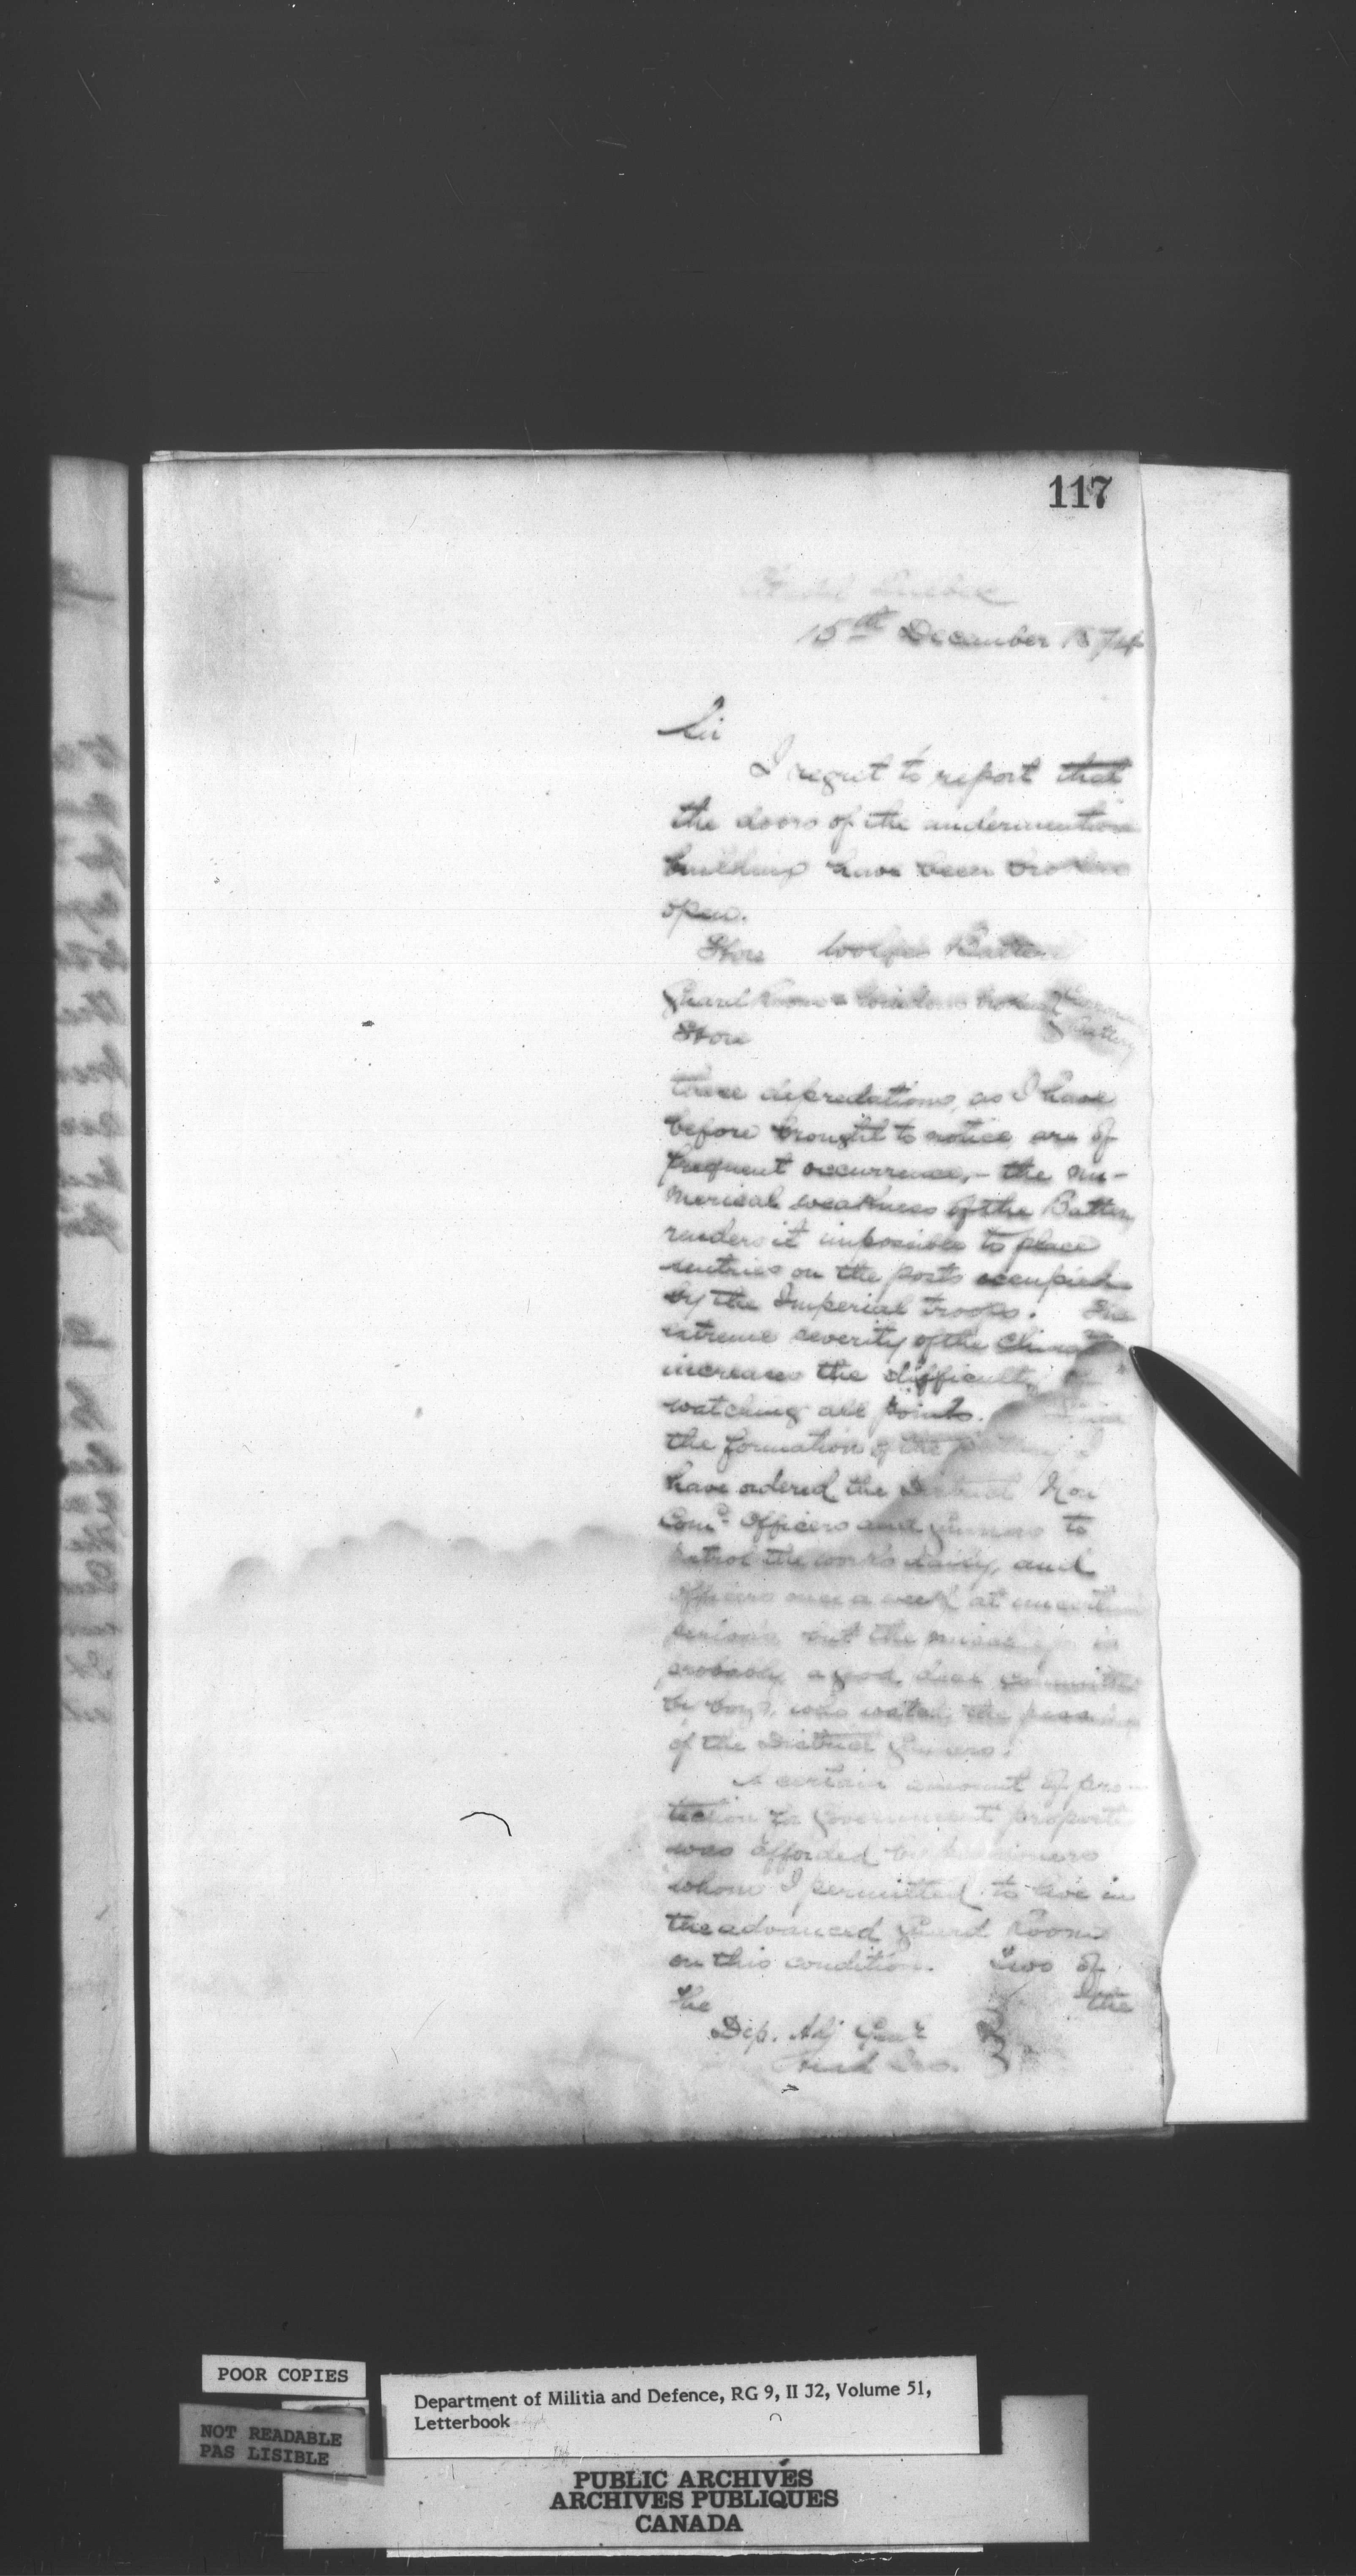 117
Citadel Quebec
15th December 1874
Sir
I regret to report that
the doors of the undermention
building have been broken
open.
Store Wolfes Batter
Guard Room - windows broken
Store
these depredations, as I have
before brought to notice are of
frequent occurrence, - the nu-
merical weakness of the Battery
renders it impossible to place
sentries on the posts occupied
by the Imperial troops. The
extreme severity of the Climat
increases the difficulty of
watching all points. Since
the formation of the Battery I
have ordered the District Non
Com'd Officers and Gunners to
patrol the works daily, and
officers once a week at uncertain
periods but the mischief is
probably a good deal committed
by boys, who watch the passing
of the District Gunners.
A certain amount of pro-
tection to Government property
was afforded by pensioners
whom I permitted to live in
the advanced Guard Room
on this condition. Two of
the
The
Dep. Adj Gen'l
POOR COPIES
NOT READABLE
PAS LISIBLE
Department of Militia and Defence, RG 9, II J2, Volume 51,
Letterbook
PUBLIC ARCHIVES
ARCHIVES PUBLIQUES
CANADA